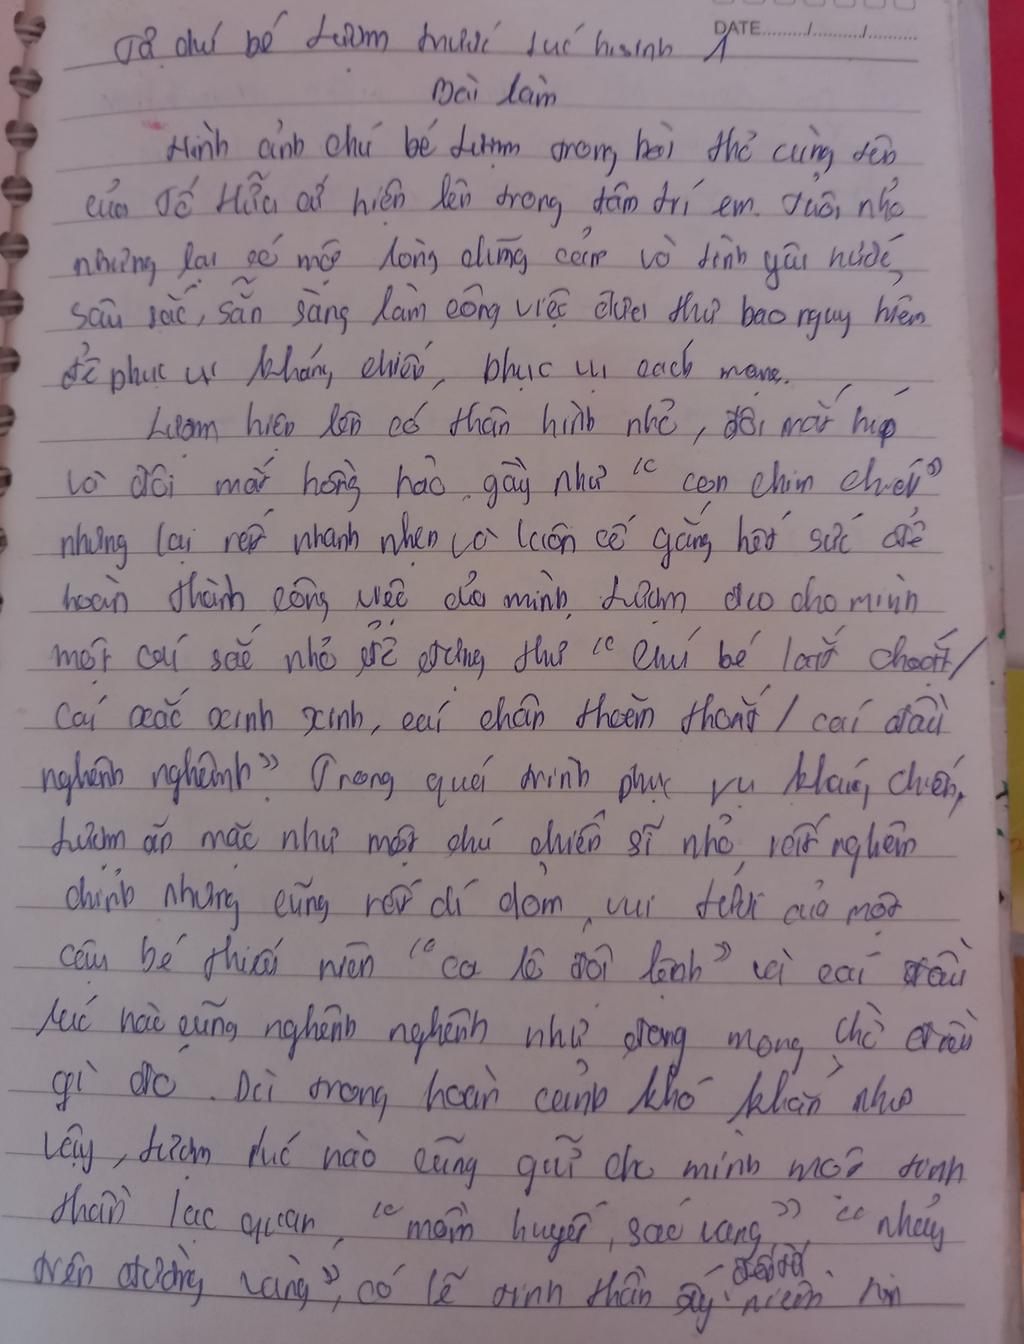 DATE......../......../.........
Tả chú bé Lượm trước lúc hi sinh 1
Bài làm
Hình ảnh chú bé Lượm trong bài thơ cùng tên
của Tố Hữu cứ hiện lên trong tâm trí em. Tuổi nhỏ
nhưng lại có một lòng dũng cảm và tình yêu nước
sâu sắc, sẵn sàng làm công việc đưa thư bao nguy hiểm
để phục vụ kháng chiến, phục vụ cách mạng.
Lượm hiện lên có thân hình nhỏ, đôi mắt híp
và đôi mắt hồng hào gầy như "con chim chích"
nhưng lại rất nhanh nhẹn và luôn cố gắng hết sức để
hoàn thành công việc của mình. Lượm đeo cho mình
một cái sắc nhỏ để đựng thư "Chú bé loắt choắt/
Cái xắc xinh xinh, cái chân thoăn thoắt/ cái đầu
nghênh nghênh" Trong quá trình phục vụ kháng chiến,
Lượm ăn mặc như một chú chiến sĩ nhỏ, rất nghiêm
chỉnh nhưng cũng rất dí dỏm, vui tươi của một
cậu bé thiếu niên "ca lô đội lệnh" và cái đầu
lúc nào cũng nghênh nghênh như đang mong chờ điều
gì đó. Dù trong hoàn cảnh khó khăn như
vậy, Lượm lúc nào cũng giữ cho mình một tinh
thần lạc quan, "mồm huýt sáo vang", "nhảy
trên đường vàng", có lẽ tinh thần ấy niềm tin